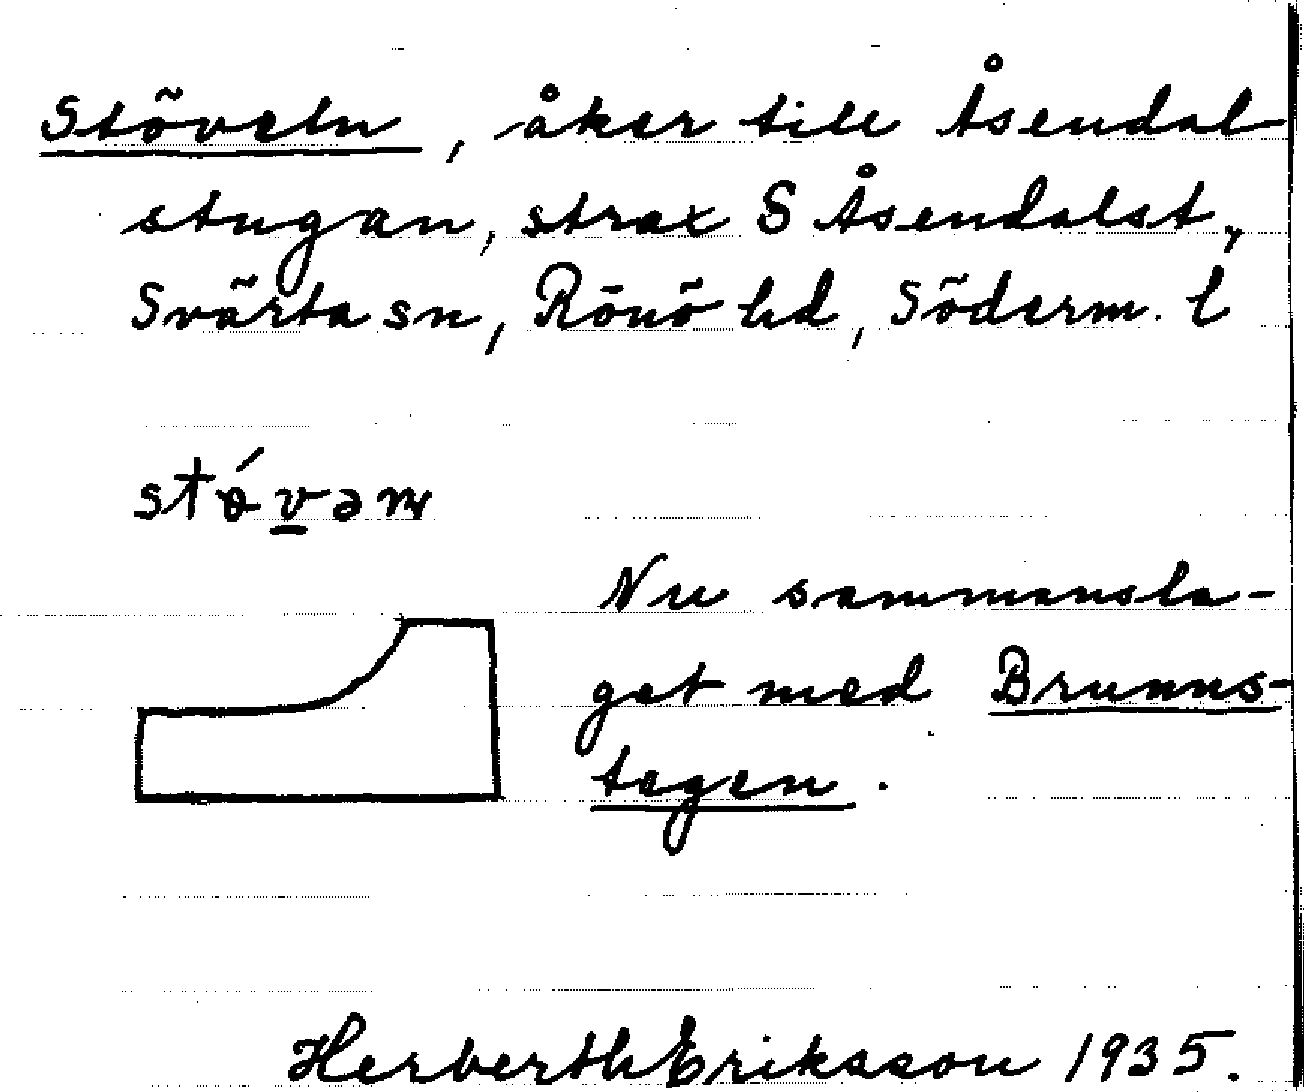 Stöveln, åker till Åsendal
stugan, strax S Åsendalst,
Svärta sn, Rönö hd, Söderm. l
Nu sammansla-
get med Brunns-
tegen.
Herberth Eriksson 1935.